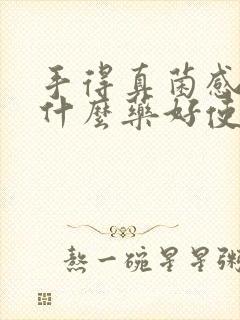 手得真菌感
什麼藥好使
熬一碗星星粥